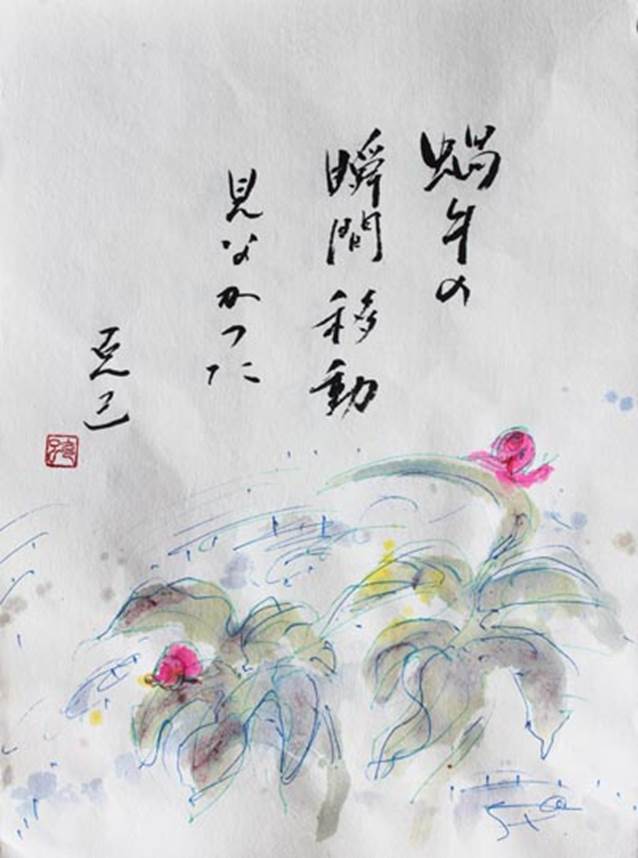 蝸牛の
瞬間移動
見なかった
克己